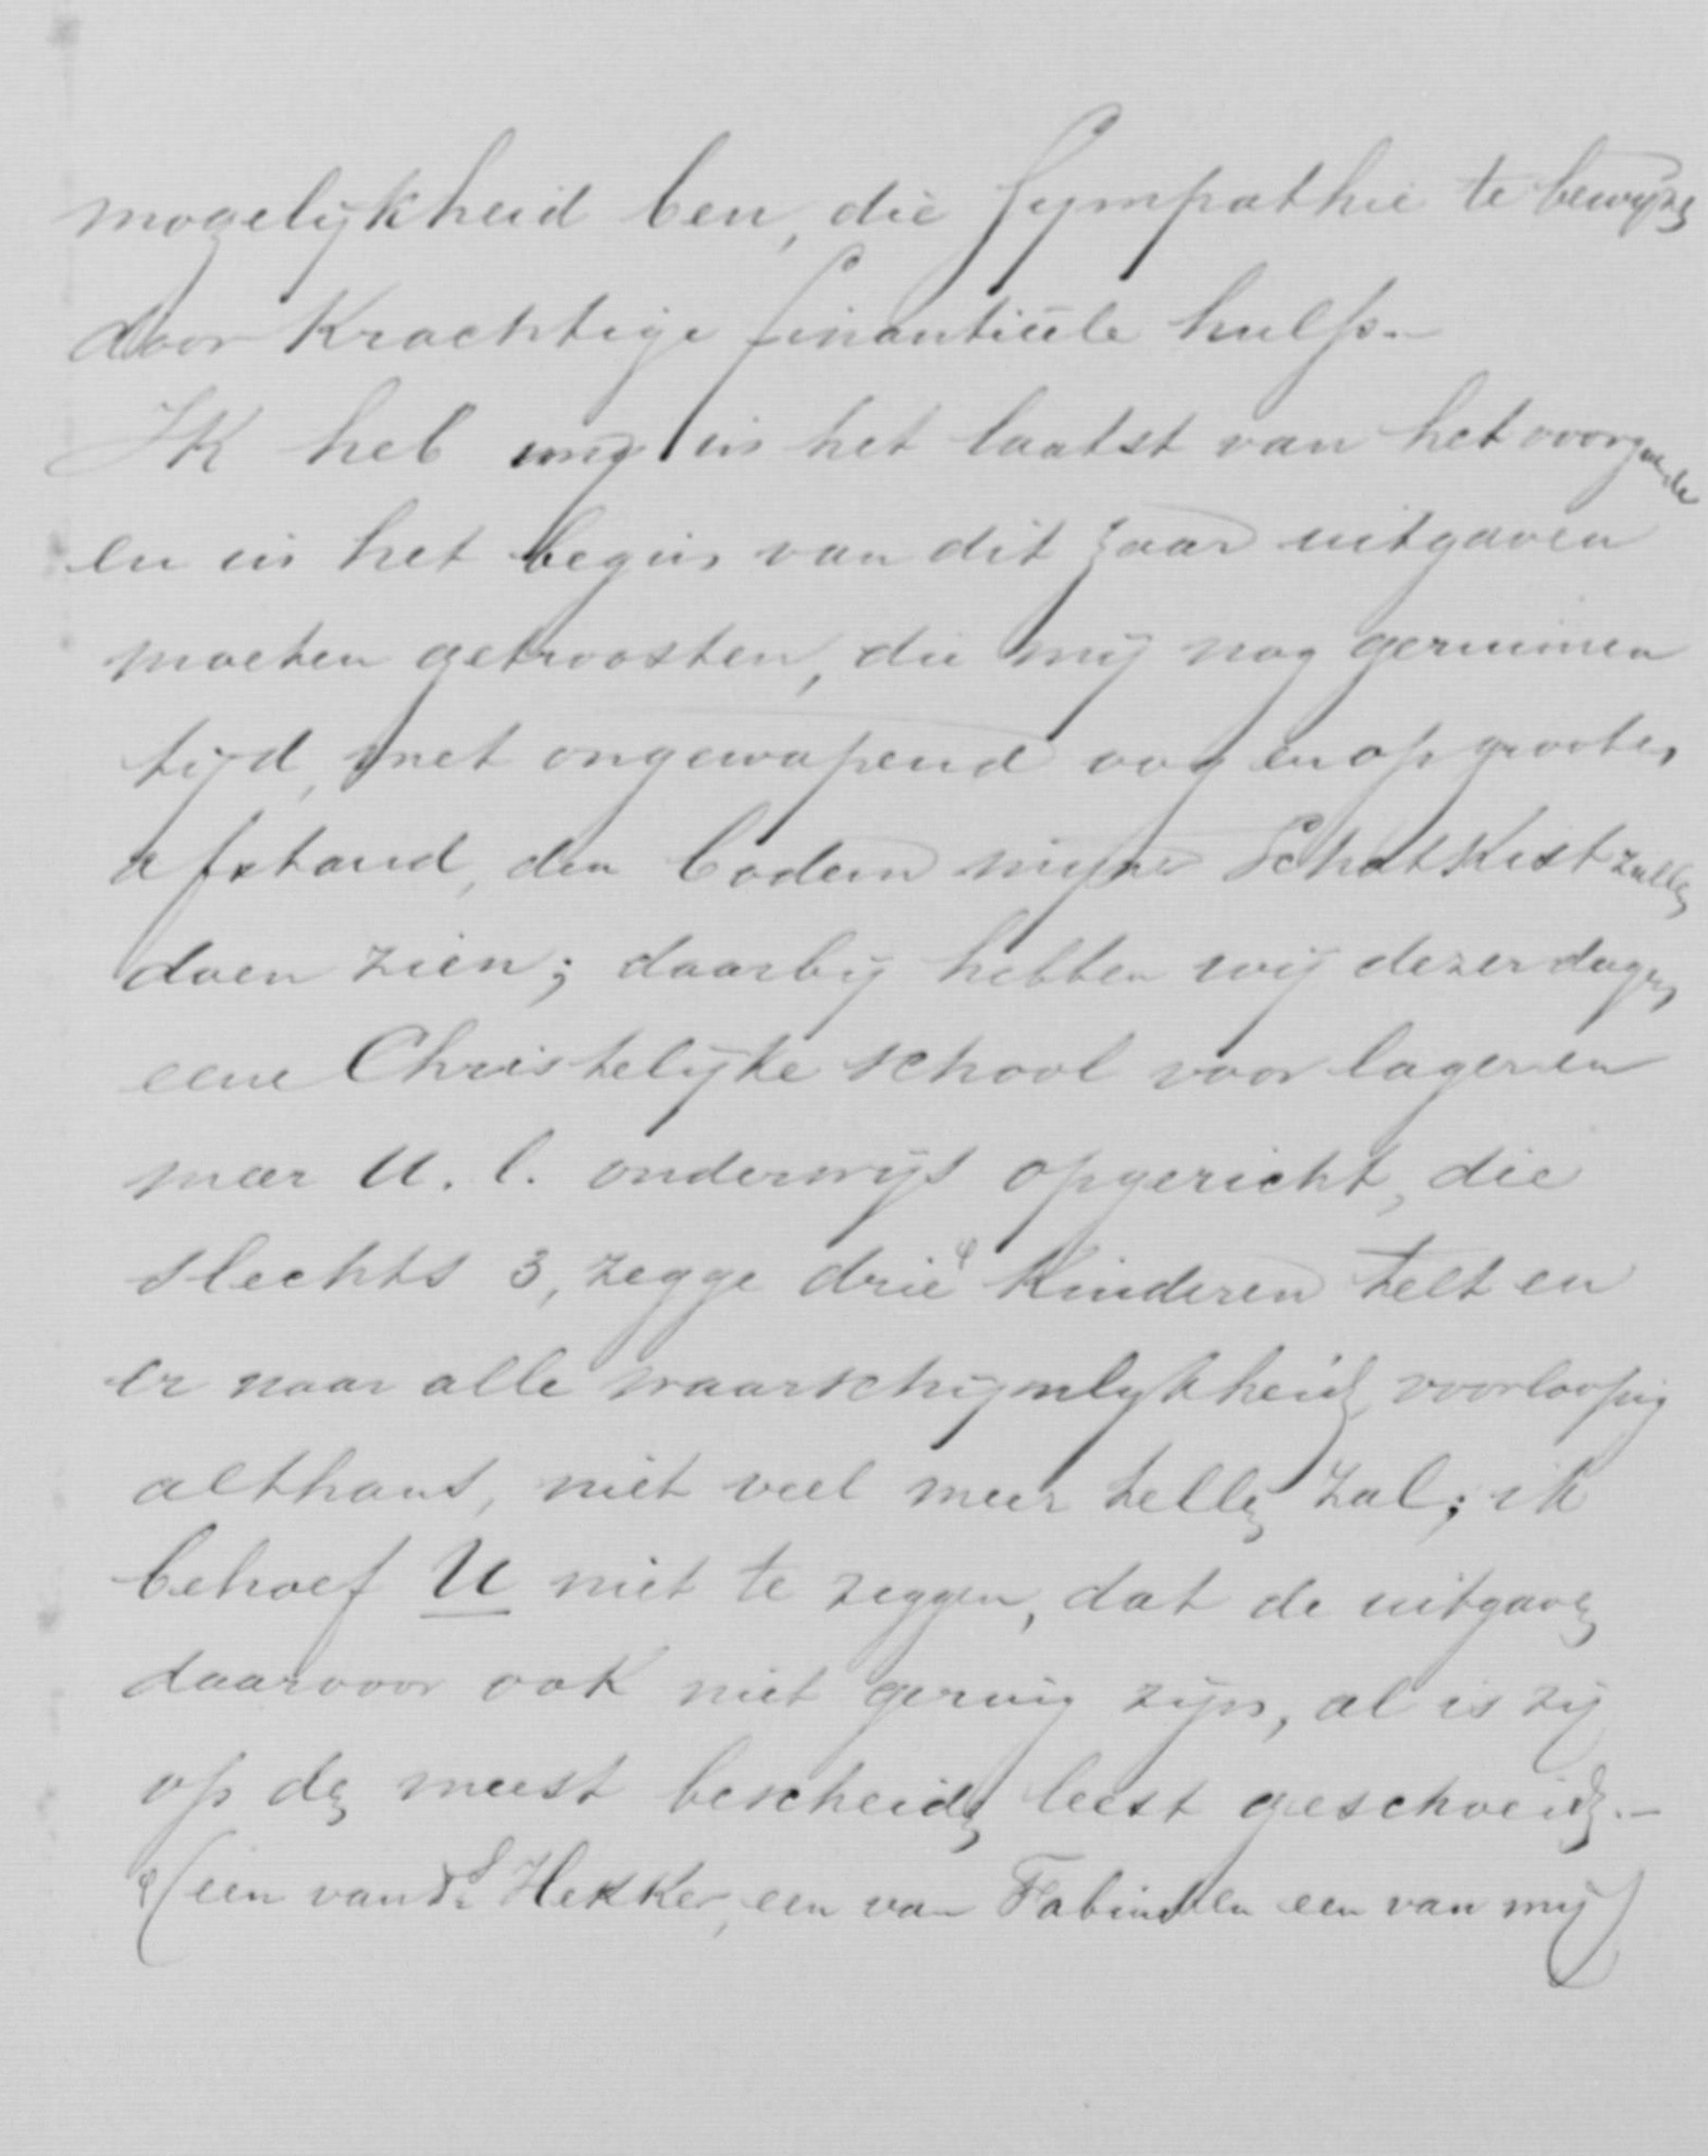 mogelykheid ben, die Sympathie te bewyzen
door Krachtige finantieële hulp.-
Ik heb my in het laatst van het voorgaande
en in het begin van dit jaar uitgaven
moeten getroosten, die mij nog geruimen
tijd, met ongewapend oog en op grooten
afstand, den bodem mijner Schatkist zullen
doen zien; daarbij hebben wij dezer dagen
eene Christelijke school voor lager en
meer U. l. onderwijs opgericht, die
slechts 3, zegge drie φ Kinderen telt en
er naar alle waarschijnlykheid, voorloopig
althans, niet veel meer tellen zal; ik
behoef U niet te zeggen, dat de uitgaven
daarvoor ook niet gering zijn, al is zij
op den meest bescheiden leest geschoeid.-
φ (een van Ds Hekker, een van Fabius en een van mij)